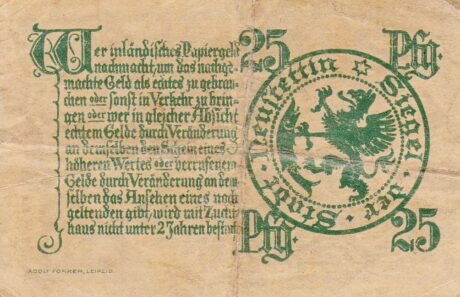 Wer inländisches Papiergeld
nachmacht, um das nachge-
machte Geld als echtes zu gebrau-
chen oder sonst in Verkehr zu brin-
gen oder wer in gleicher Absicht
echtem Gelde durch Veränderung
an demselben den Schein eines
höheren Wertes oder verrufenem
Gelde durch Veränderung an dem-
selben das Ansehen eines noch
geltenden gibt, wird mit Zucht-
haus nicht unter 2 Jahren bestraft
25 Pfg.
Siegel der Stadt Neustettin
Pfg. 25
ADOLF FORKER, LEIPZIG.